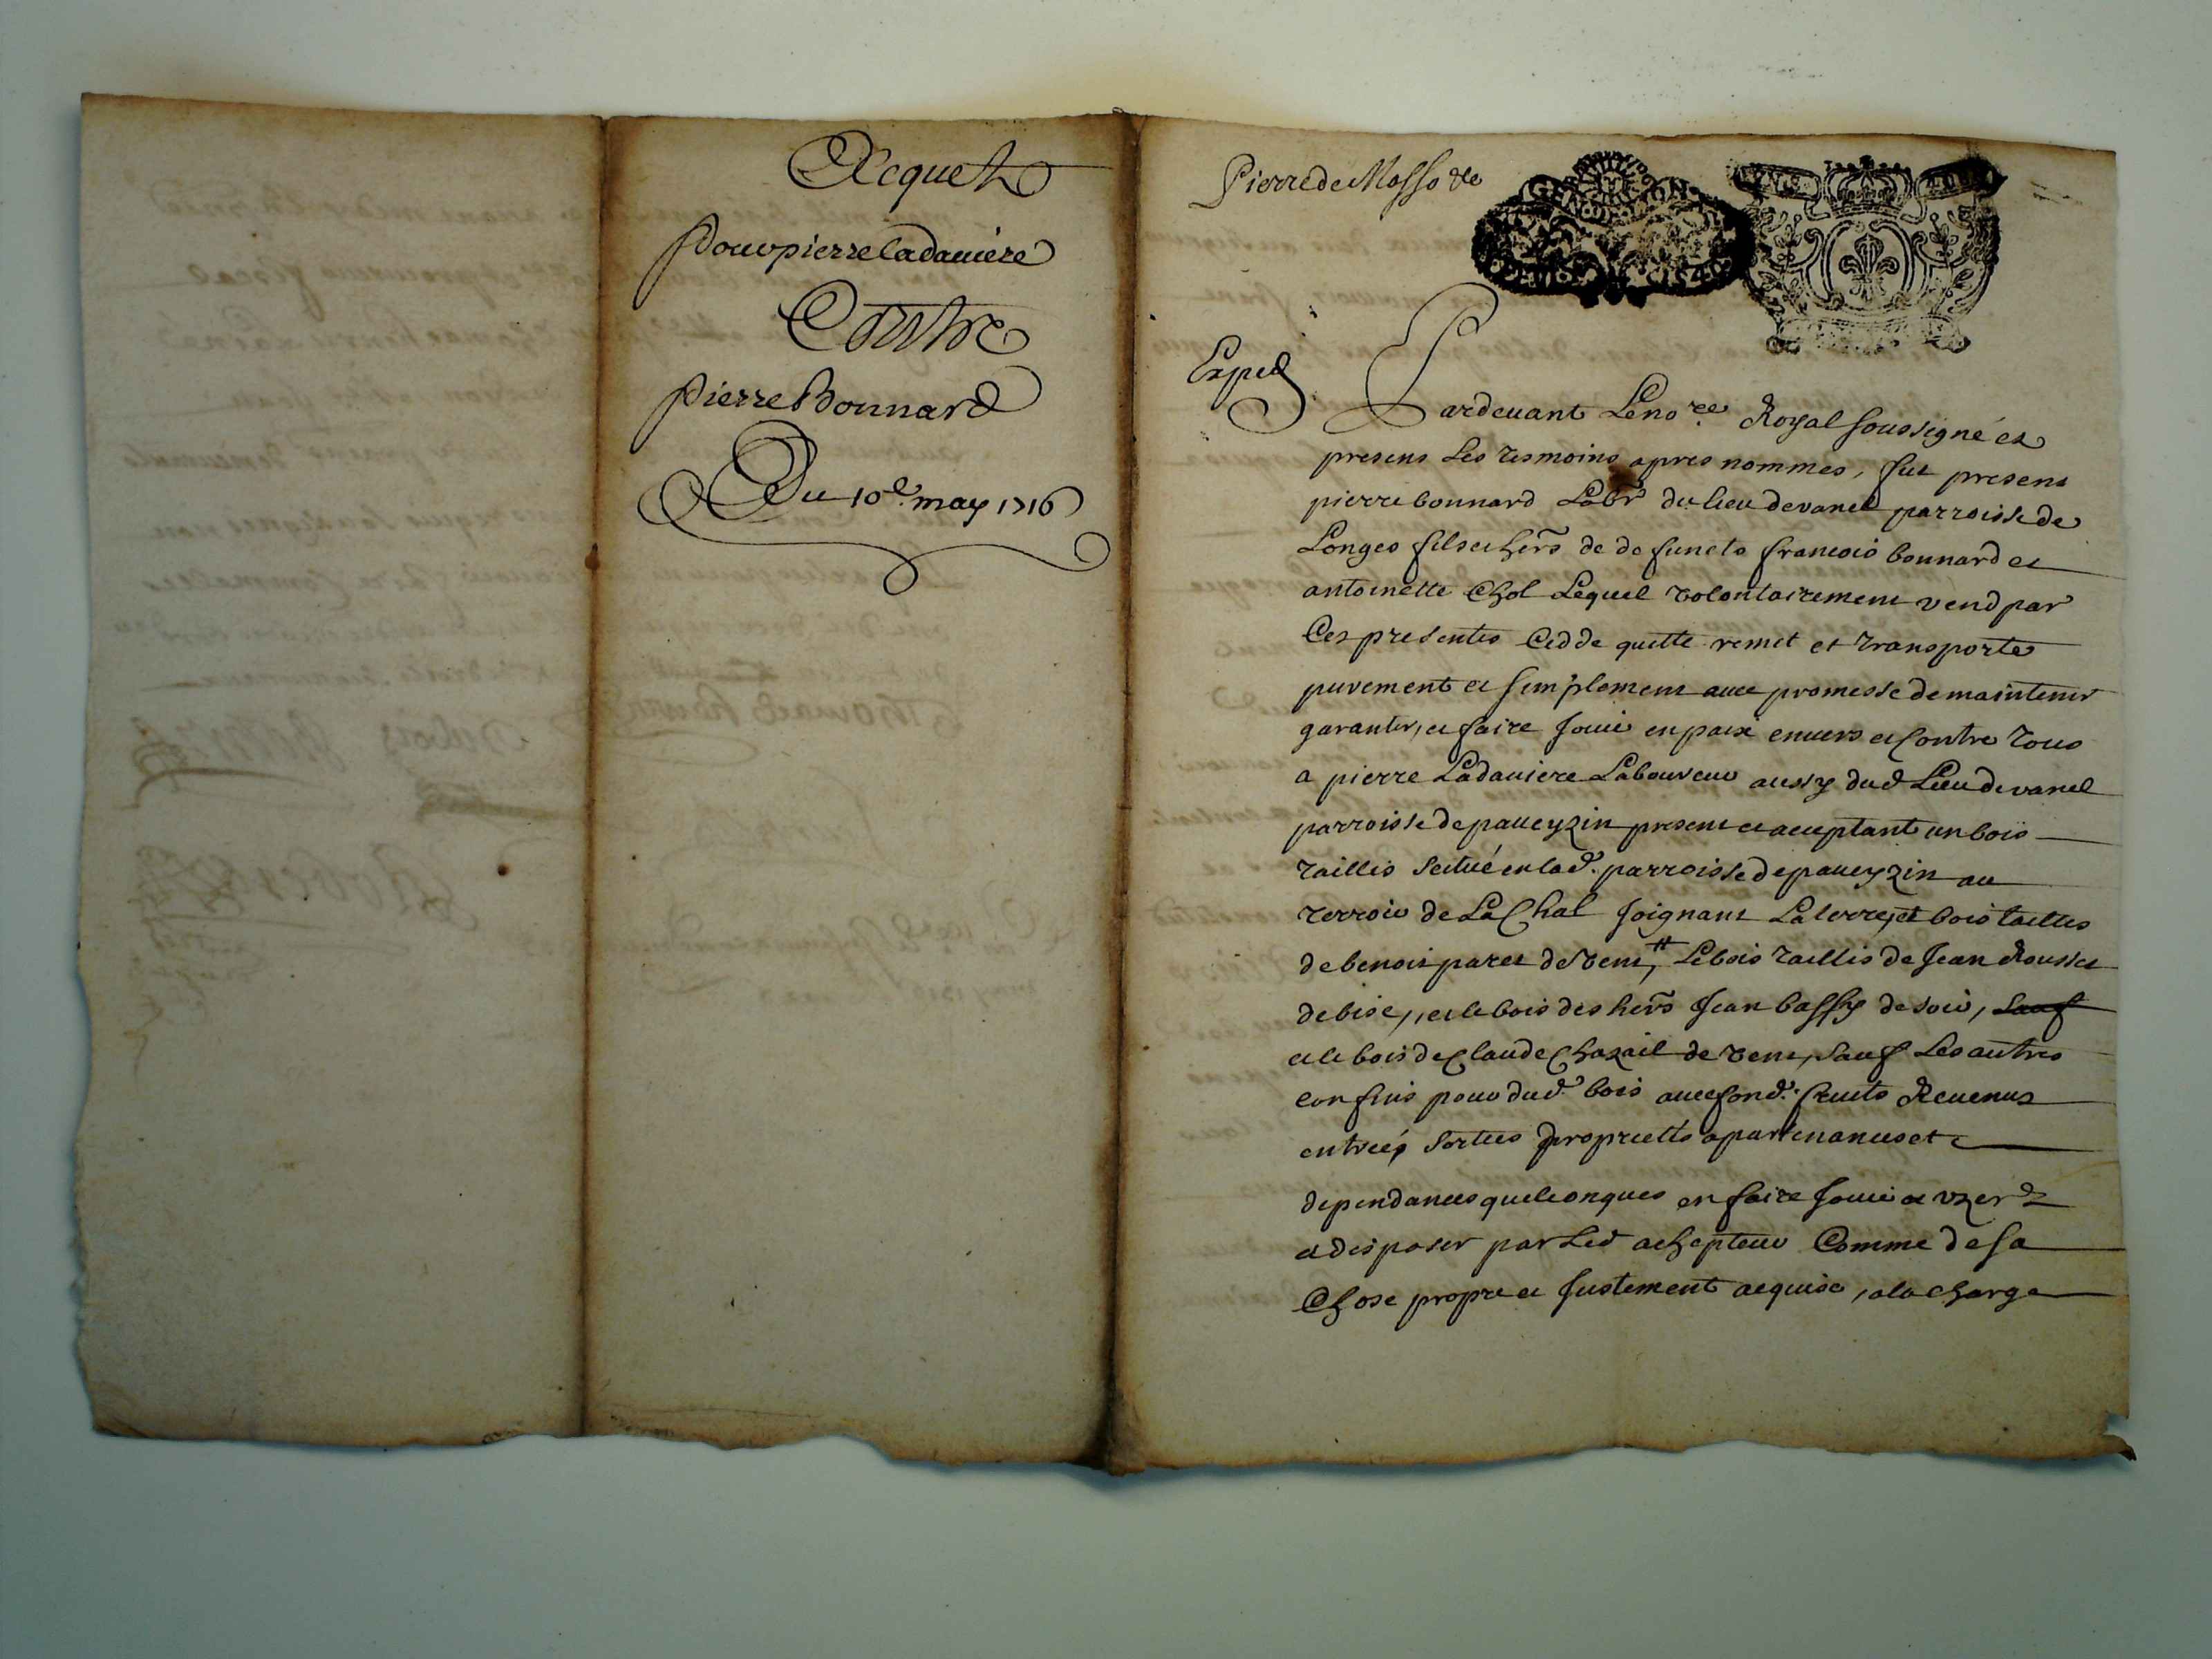 Acquet
Pour pierre Ladaviere
Contre
pierre Bonnard
Du 10e. may 1716
Pierre de
Exped
Pardevant Le nore. Royal soussigné et
presens Les tesmoins apres nommes, fut present
pierre bonnard Labr du lieu de vanel parroisse de
Longes fils et hers de defuncts francois bonnard et
antoinette Chol Lequel volontairement vend par
Ces presentes Cedde quitte remet et transporte
purement et simplement avec promesse de maintenir
garantir, et faire Jouir en paix envers et Contre tous
a pierre Ladaviere Laboureur aussy dud Lieu de vanel
parroisse de paveyzin present et aceptant un bois
taillis scitué en lad. parroisse de paveyzin au
terroir de La Chal Joignant La terre, et bois taillis
de benoit paret de vent, Le bois taillis de Jean Rousset
de bise, et le bois des hers Jean bassy de soir, sauf
et le bois de Claude Chazail de vent, sauf Les autres
confins pour dud. bois avec fond. fruits Revenus
entrées sorties proprietes apartenances et
dependances quelconques en faire Jouir et uzer
et disposer par Led achepteur Comme de sa
Chose propre et Justement acquise, a la charge